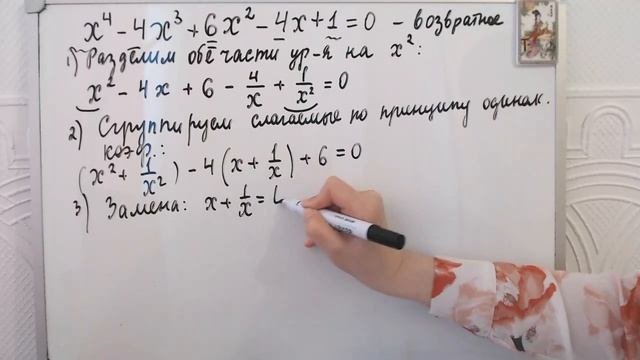 x⁴ - 4x³ + 6x² - 4x + 1 = 0 - возвратное
1) Разделим обе части ур-я на x²:
x² - 4x + 6 - 4/x + 1/x² = 0
2) Сгруппируем слагаемые по принципу одинак.
коэф.:
(x² + 1/x²) - 4(x + 1/x) + 6 = 0
3) Замена: x + 1/x =